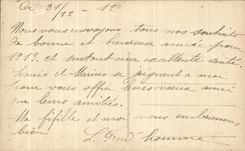 Le 31/12 - 12
Nous vous envoyons tous nos souhaits
de bonne et heureuse année pour
1913. et surtout une excellente santé.
Louis et Marius se joignent à moi
pour vous offrir leurs vœux ainsi
que leurs amitiés.
Ma fifille et moi vous embrassons
bien
L. homme